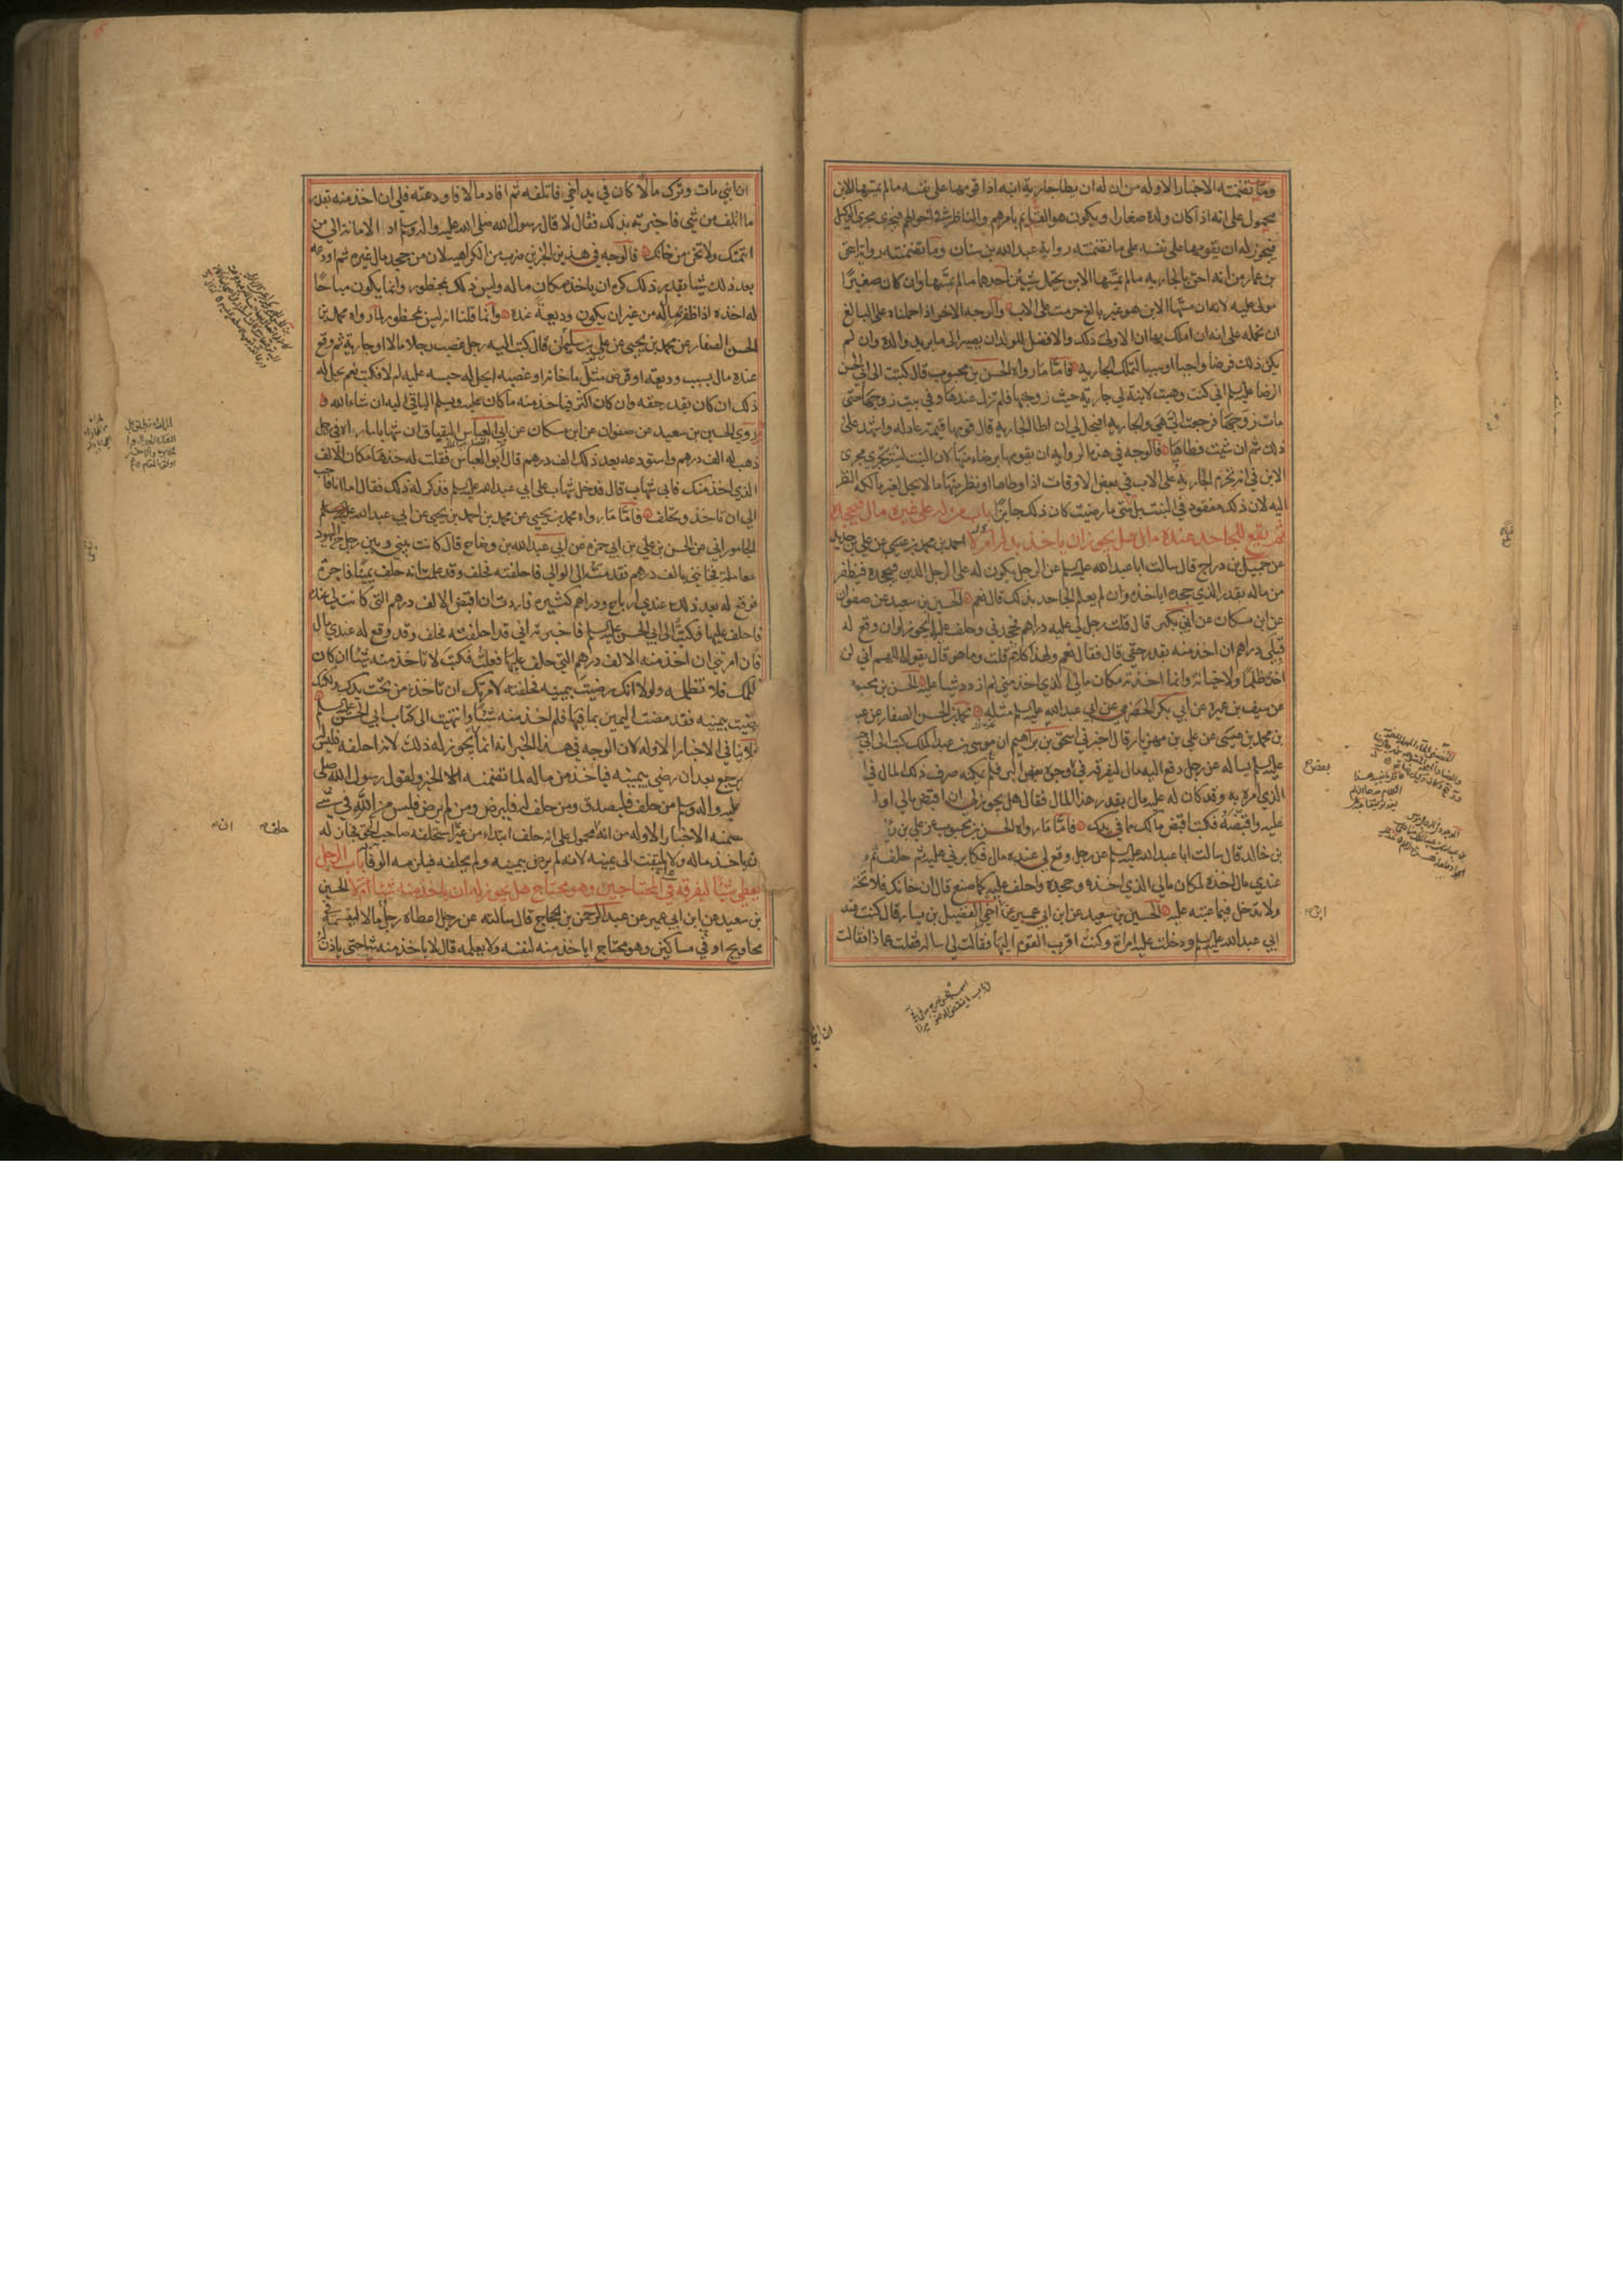 وما تضمنته الاخبار الاوله من ان له ان يطا جارية ابنه اذا قومها على نفسه ما لم يمسها الابن
محمول على انه اذا كان ولده صغارا ويكون هو القايم بامرهم والناظر في احوالهم فيجري مجرى الوكيل
فيجوز له ان يقومها على نفسه على ما تضمنته رواية عبد الله بن سنان وما تضمنته رواية اسحق
بن عمار من انه احق بالجاريه ما لم يمسها الابن يحتمل شيئين احدهما ما لم يمسها وان كان صغيرا
مولى عليه لانه ان مسها الابن هو غير بالغ حرمت على الاب والوجه الاخر اذا حملناه على البالغ
ان نحمله على انه ان املك بها ان الاولى ذلك والافضل للولد ان يصير الى ما يريد والده وان لم
يكن ذلك فرضا واجبا او سببا لتملك الجاريه فاما ما رواه الحسن بن محبوب قال كتبت الى ابي الحسن
الرضا عليه السلم اني كنت وهبت لابنة لي جارية حيث زوجتها فلم تزل عندها وفي بيت زوجها حتى
مات زوجها فرجعت الي هي والجارية افيحل لي ان اطا الجارية قال قومها قيمة عادله واشهد على
ذلك ثم ان شئت فطاها فالوجه في هذه الروايه ان يقومها برضاء منها لان البنت ليست تجري مجرى
الابن في انه تحرم الجارية على الاب في بعض الاوقات اذا وطاها او نظر منها ما لا يحل لغير مالكه النظر
اليه لان ذلك مفقود في البنت بل متى ما رضيت كان ذلك جايزا باب من له على غيره مال فيجحده
ثم يقع للجاحد عنده مال هل يجوز ان ياخذ بدله ام لا احمد بن محمد بن عيسى عن علي بن حديد
عن جميل بن دراج قال سالت ابا عبد الله عليه السلم عن الرجل يكون له على الرجل الدين فيجحده فيظفر
من ماله بقدر الذي جحده اياخذه وان لم يعلم الجاحد بذلك قال نعم الحسين بن سعيد عن صفوان
عن ابن مسكان عن ابي بكر قال قلت رجل لي عليه دراهم فجحدني وحلف عليها ايجوز لي ان وقع له
قبلي دراهم ان اخذ منه بقدر حقي قال فقال نعم ولهذا كلام قلت وما هو قال يقول اللهم اني لن
اخذه ظلما ولا خيانة وانما اخذته مكان مالي الذي اخذ مني لم ازدد شيئا عليه الحسن بن محبوب
عن سيف بن عميرة عن ابي بكر الحضرمي عن ابي عبد الله عليه السلم مثله محمد بن الحسن الصفار عن عبد
بن محمد بن عيسى عن علي بن مهزيار قال اخبرني اسحق بن ابراهيم ان موسى بن عبد الملك كتب الى ابي جعفر
عليه السلم يساله عن رجل دفع اليه مال ليفرقه في وجوه البر فلم يمكنه صرف ذلك المال في
الذي امره به وقد كان له عليه مال بقدر هذا المال فقال هل يجوز لي ان اقبض مالي او ا
عليه واقتضيه فكتب اقبض مالك مما في يدك فاما ما رواه الحسن بن محبوب عن علي بن
بن خالد قال سالت ابا عبد الله عليه السلم عن رجل وقع لي عنده مال فكابرني عليه ثم حلف ثم
عندي مال اخذه لمكان مالي الذي اخذه وجحده واحلف عليه كما صنع قال ان خانك فلا تخنه
ولا تدخل فيما عبته عليه الحسين بن سعيد عن ابن ابي عمير عن ابن اخي الفضيل بن يسار قال كنت عند
ابي عبد الله عليه السلم ودخلت عليه امراة وكنت اقرب القوم اليها فقالت لي ساله فقلت عما ذا فقالت
بعض
ان ابني
ان ابني مات وترك مالا كان في يد اخي فاتلفه ثم افاد مالا فاودعنه فلي ان اخذ منه بقدر
ما اتلف من شي فاخبرته بذلك فقال لا قال رسول الله صلى الله عليه واله وسلم اد الامانة الى من
ائتمنك ولا تخن من خانك فالوجه في هذين الخبرين ضرب من الكراهيه لان من جحد مال غيره ثم اودعه
بعد ذلك شيئا بقدر ذلك كره ان ياخذ مكان ماله وليس ذلك بمحظور وانما يكون مباحا
له اخذه اذا ظفر بماله من غير ان يكون وديعة عنده وانما قلنا انه ليس بمحظور لما رواه محمد بن
الحسن الصفار عن محمد بن يحيى عن علي بن سليمان قال كتب اليه رجل غصب رجلا مالا او جارية ثم وقع
عنده مال بسبب وديعة او قرض مثل ما خانه او غصبه ايحل له حبسه عليه ام لا فكتب نعم يحل له
ذلك ان كان بقدر حقه وان كان اكثر فياخذ منه ما كان عليه ويسلم الباقي اليه ان شاء الله
روى الحسين بن سعيد عن صفوان عن ابن مسكان عن ابي العباس البقباق ان شهابا ماراه في رجل
ذهب له الف درهم واستودعه بعد ذلك الف درهم قال ابو العباس فقلت له خذها مكان الالف
الذي اخذ منك فابى شهاب قال فدخل شهاب على ابي عبد الله عليه السلم فذكر له ذلك فقال اما انا فاحب
الي ان تاخذ وتحلف فاما ما رواه محمد بن يحيى عن محمد بن احمد بن يحيى عن ابي عبد الله
الجاموراني عن الحسن بن علي بن ابي حمزة عن ابي عبد الله بن وضاح قال كانت بيني وبين رجل من اليهود
معاملة فخانني بالف درهم فقدمته الى الوالي فاحلفته فحلف وقد علمت انه حلف يمينا فاجرة
فوقع له بعد ذلك عندي ارباح ودراهم كثيرة فاردت ان اقبض الالف درهم التي كانت لي عنده
فاحلف عليها فكتبت الى ابي الحسن عليه السلم فاخبرته اني قد احلفته فحلف وقد وقع له عندي مال
فان امرتني ان اخذ منه الالف درهم التي حلف عليها فعلت فكتب لا تاخذ منه شيئا ان كان
ظلمك فلا تظلمه ولولا انك رضيت بيمينه فحلفته لامرتك ان تاخذ من تحت يدك ولكنك
رضيت بيمينه فقد مضت اليمين بما فيها فلم اخذ منه شيئا وانتهيت الى كتاب ابي الحسن عليه السلم
فلا ينافي الاخبار الاوله لان الوجه في هذا الخبر انه انما لا يجوز له ذلك لانه احلفه فليس
يرجع بعد ان رضي بيمينه فياخذ من ماله لما تضمنه الخبر ولقول رسول الله صلى
عليه واله وسلم من حلف فليصدق ومن حلف له فليرض ومن لم يرض فليس من الله في شي
تضمنه الاخبار الاوله من انه محمول على انه حلف ابتداء من غير استحلفه صاحب الحق فجاز له
ان ياخذ ماله ولا يلتفت الى يمينه لانه لم يرض بيمينه ولم يحلفه فيلزمه الوفا باب الرجل
يعطى شيئا ليفرقه في المحتاجين وهو محتاج هل يجوز له ان ياخذ منه شيئا ام لا الحسين
بن سعيد عن ابن ابي عمير عن عبد الرحمن بن الحجاج قال سالته عن رجل اعطاه رجل مالا ليقسمه في
محاويج او في مساكين وهو محتاج اياخذ منه لنفسه ولا يعلمه قال لا ياخذ منه شيئا حتى ياذن له